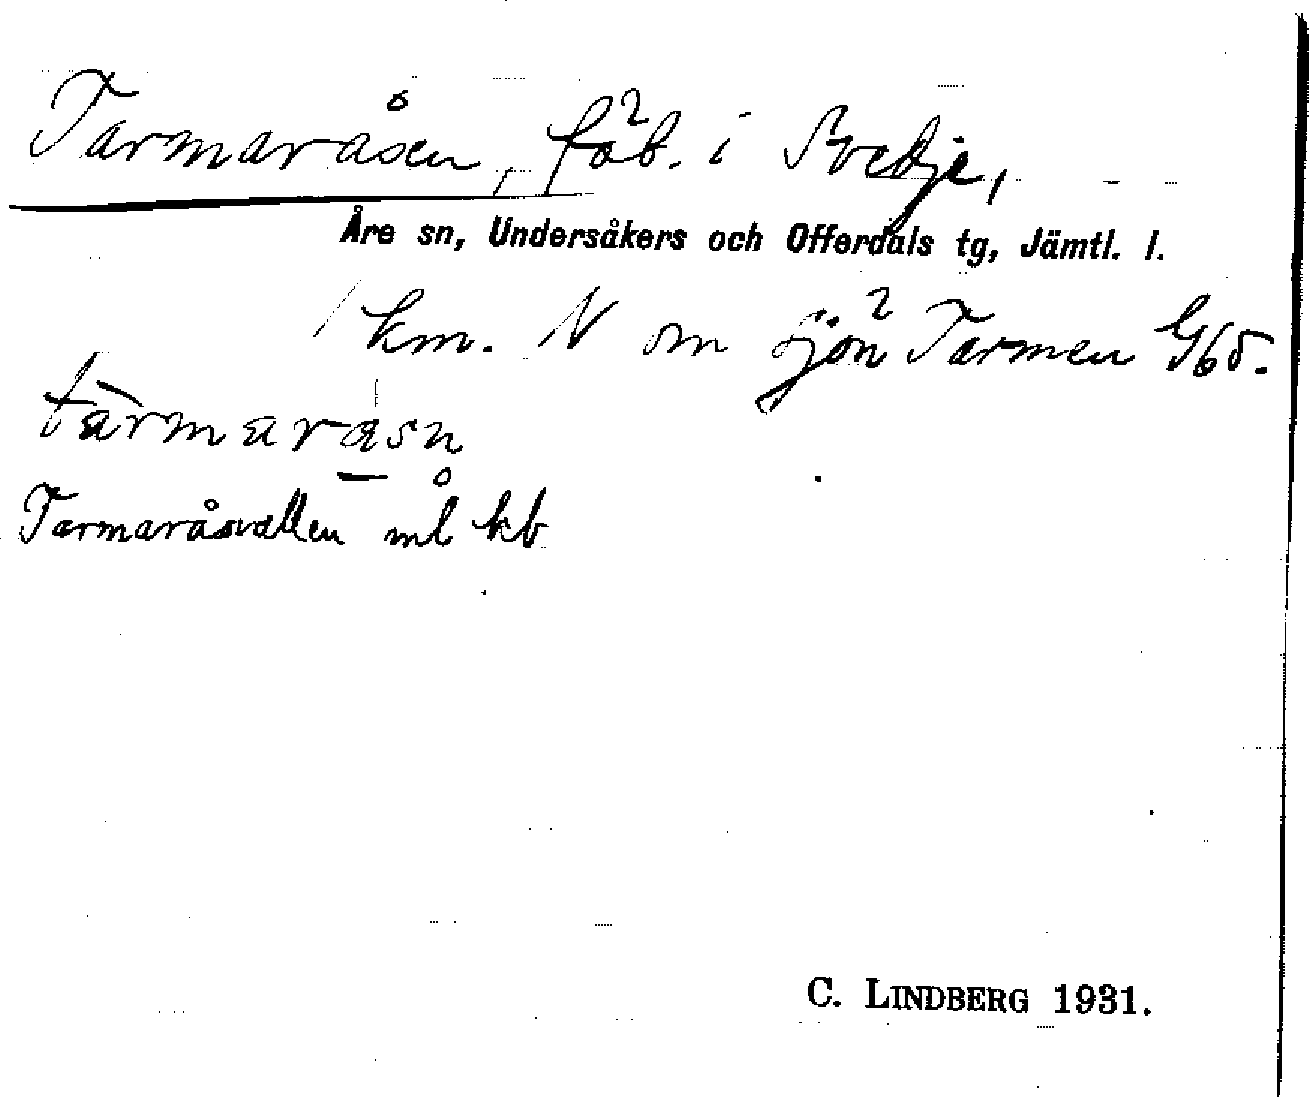 Tarmaråsen, fäb. i Svedje,
Åre sn, Undersåkers och Offerdals tg, Jämtl. l.
1 km. N om sjön Tarmen G65.
tarmaråsn
Tarmaråsvallen ml kb
C. LINDBERG 1931.